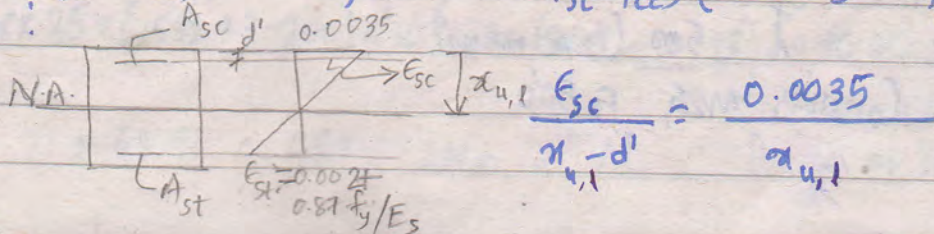 A_sc d' 0.0035
N.A. ε_sc x_u,1
ε_sc / x_u,1 - d' = 0.0035 / x_u,1
A_st ε_st = 0.002 +
0.87 f_y/E_s